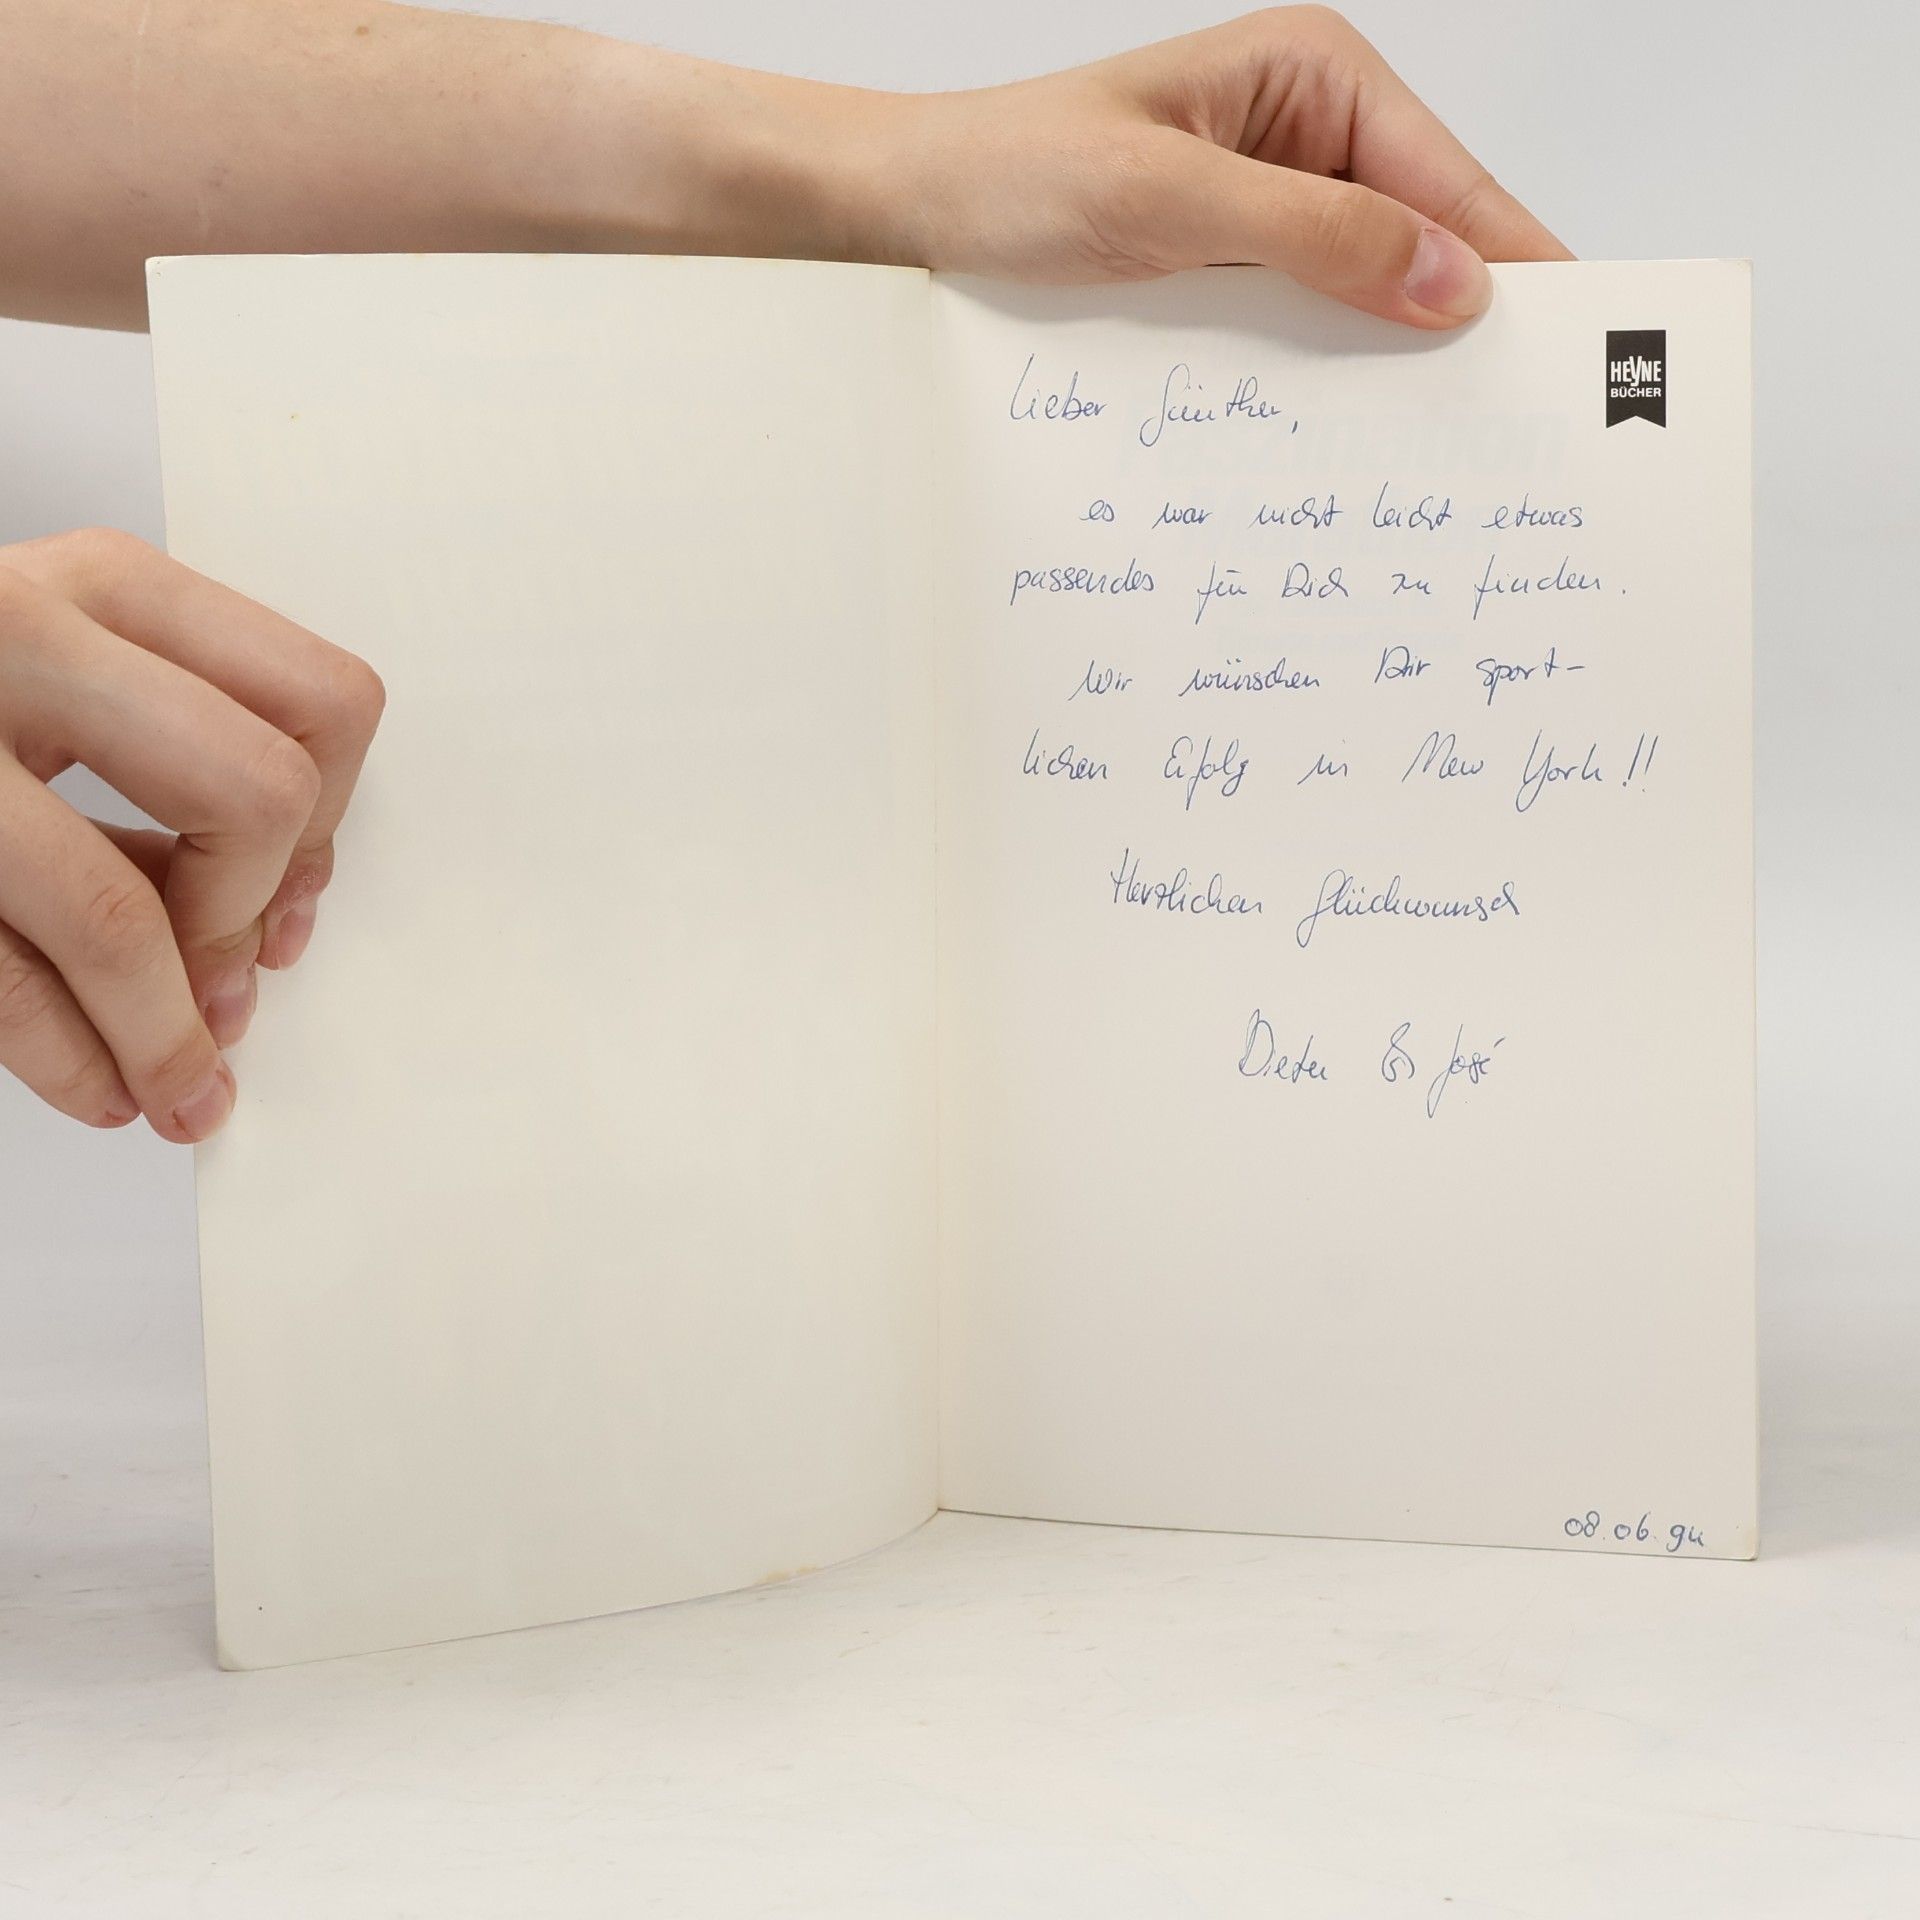 HEYNE
BÜCHER
Lieber Günther,
es war nicht leicht etwas
passendes für Dich zu finden.
Wir wünschen Dir sport-
lichen Erfolg in New York!!
Herzlichen Glückwunsch
Dieter & José
08.06.94